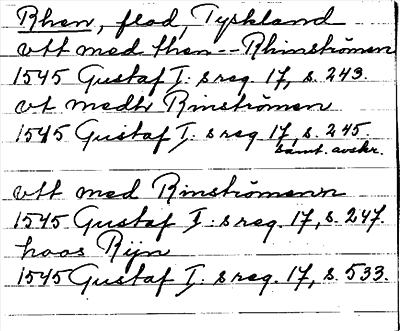 Rhen, flod, Tyskland
vtt med then -- Rhinströmen
1545 Gustaf I: s reg. 17, s. 243.
vt medh Rinströmen
1545 Gustaf I: s reg 17, s. 245.
samt. avskr.
vtt med Rinströmenn
1545 Gustaf I: s reg. 17, s. 247.
hoos Rijn
1545 Gustaf I: s reg. 17, s. 533.